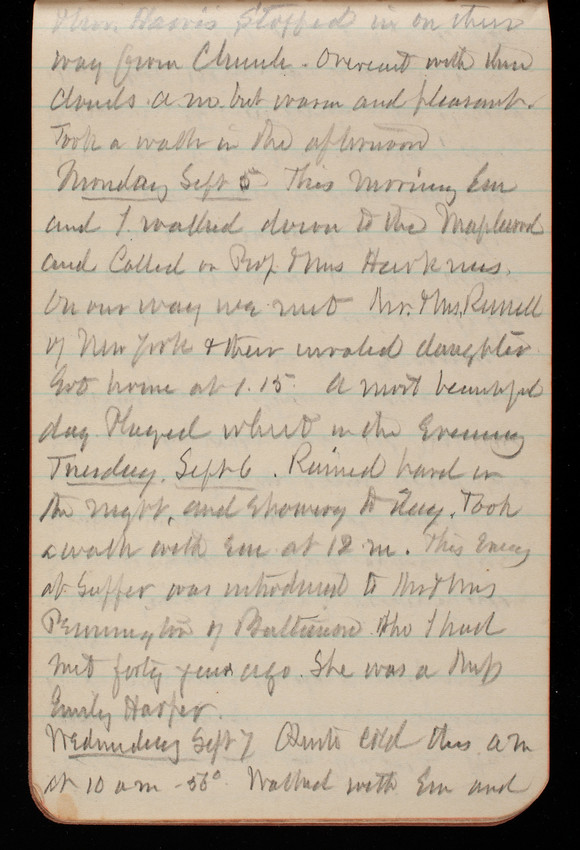 Mrs. Harris Stopped in on their
way from Church. Overcast with thin
clouds a m. but warm and pleasant.
Took a walk in the afternoon
Monday Sept 5 This morning Em
and I walked down to the Maplewood
and Called on Prof & Mrs Harkness.
On our way we met Mr. & Mrs. Russell
of New York & their invalid daughter
Got home at 1.15. A most beautiful
day Played whist in the Evening
Tuesday. Sept 6. Rained hard in
the night, and showery to day. Took
a walk with Em at 12 m. This Eveng
at Supper was introduced to Mr & Mrs
Pennington of Baltimore. Who I had
met forty years ago. She was a Miss
Emily Harper.
Wednesday Sept 7 Quite cold this a m
at 10 a m - 56° Walked with Em and